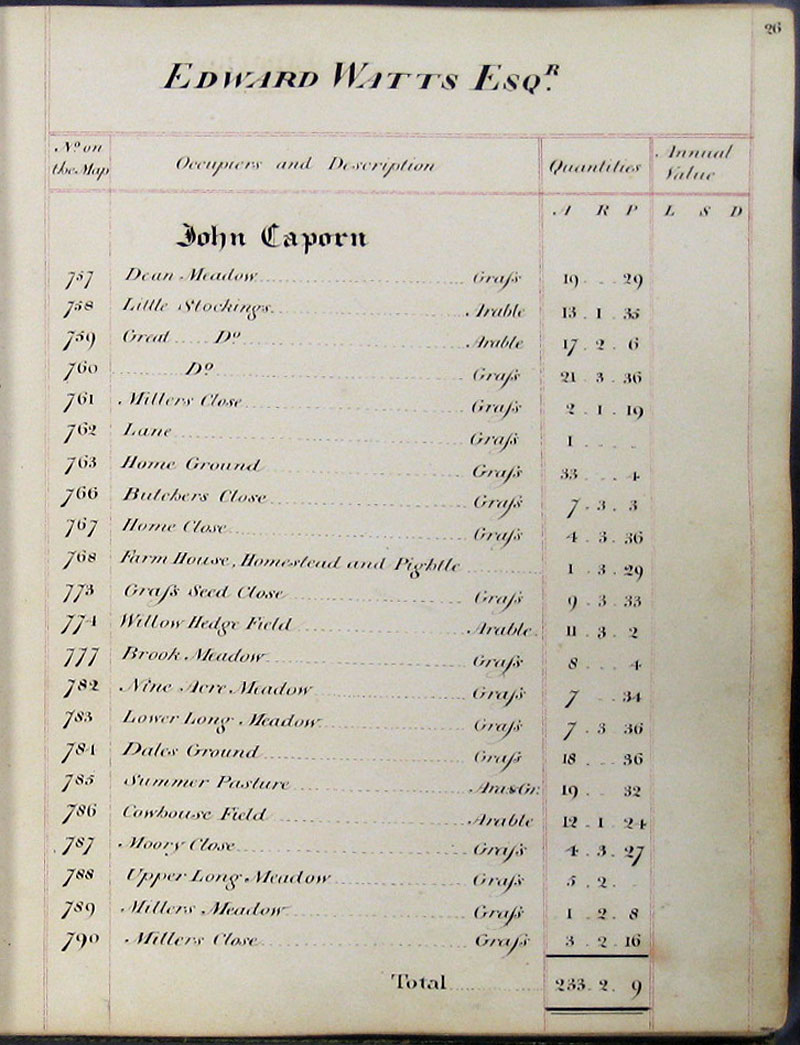 26
EDWARD WATTS ESQ.R
No on the Map Occupiers and Description Quantities Annual Value
A R P L S D
John Caporn
757 Dean Meadow Graſs 19 . . 29
758 Little Stockings Arable 13 . 1 . 35
759 Great Do Arable 17 . 2 . 6
760 Do Graſs 21 . 3 . 36
761 Millers Close Graſs 2 . 1 . 19
762 Lane Graſs 1 . . .
763 Home Ground Graſs 33 . . 4
766 Butchers Close Graſs 7 . 3 . 3
767 Home Close Graſs 4 . 3 . 36
768 Farm House, Homestead and Pightle 1 . 3 . 29
773 Graſs Seed Close Graſs 9 . 3 . 33
774 Willow Hedge Field Arable 11 . 3 . 2
777 Brook Meadow Graſs 8 . . 4
782 Nine Acre Meadow Graſs 7 . . 34
783 Lower Long Meadow Graſs 7 . 3 36
784 Dales Ground Graſs 18 . . 36
785 Summer Pasture Ara&Gr: 19 . . 32
786 Cowhouse Field Arable 12 . 1 . 24
787 Moory Close Graſs 4 . 3 . 27
788 Upper Long Meadow Graſs 5 . 2 .
789 Millers Meadow Graſs 1 . 2 . 8
790 Millers Close Graſs 3 . 2 . 16
Total 233 . 2 . 9